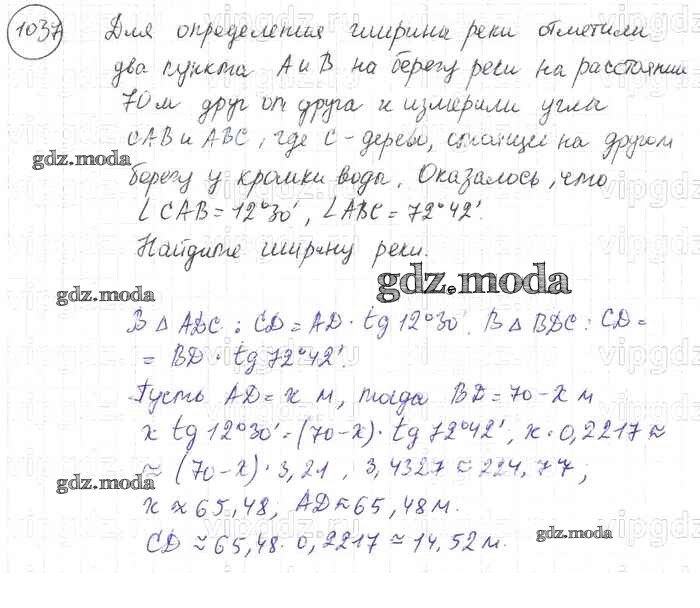 1037 Для определения ширина реки отметили
два пункта А и В на берегу реки на расстоянии
70 м друг от друга и измерили угла
САВ и АВС, где С - дерево, стоящее на другом
gdz.moda
берегу у кромки воды. Оказалось, что
∠ CAB = 12°30', ∠ABC = 72°42'.
Найдите ширину реки.
gdz.moda
gdz.moda
В △ ADC : CD = AD · tg 12°30'. В △ BDC : CD =
= BD · tg 72°42'.
Пусть AD = x м, тогда BD = 70 - x м
x tg 12°30' = (70 - x) · tg 72°42', x · 0,2217 ≈
≈ (70 - x) · 3,21 , 3,4327 ≈ 224,77 ;
gdz.moda
x ≈ 65,48, AD ≈ 65,48 м.
CD ≈ 65,48 · 0,2217 ≈ 14,52 м.
gdz.moda